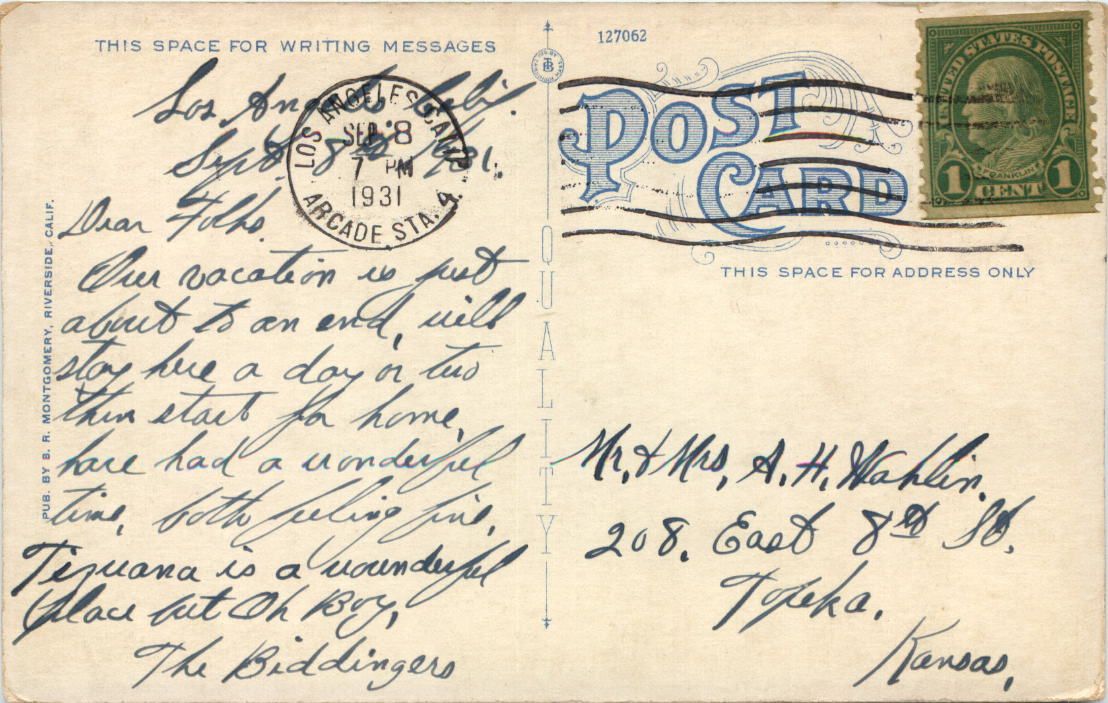 THIS SPACE FOR WRITING MESSAGES
127062
Los Angeles Calif.
Sept. 8th 1931.
Dear Folks.
Our vacation is just
about to an end, will
stay here a day or two
then start for home,
have had a wonderful
time, both feeling fine,
Tijuana is a wounderful
place but Oh Boy,
The Biddingers
PUB. BY B. R. MONTGOMERY, RIVERSIDE, CALIF.
LOS ANGELES, CALIF.
SEP 8
7 PM
1931
ARCADE STA. 4.
QUALITY
POST
CARD
UNITED STATES POSTAGE
FRANKLIN
1 CENT 1
THIS SPACE FOR ADDRESS ONLY
Mr. & Mrs. A. H. Wahlin.
208. East 8th St.
Topeka.
Kansas,